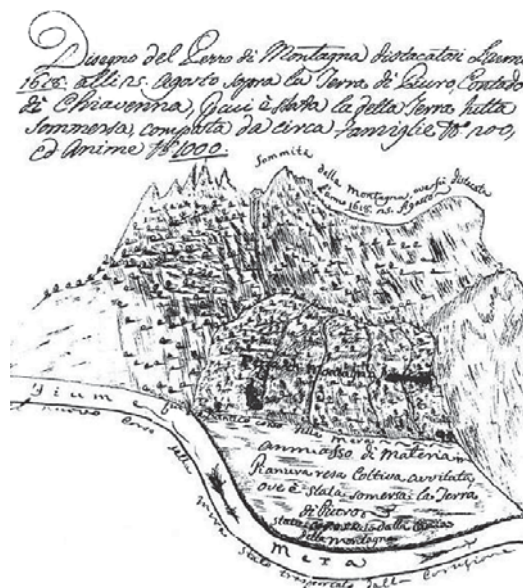 Disegno del Pezzo di Montagna distacatosi L'anno
1618. alli 25. Agosto sopra la Terra di Piuro, Contado
di Chiavenna, Qual è stata la della Terra tutta
sommersa, composta da circa Famiglie N° 200,
ed Anime N° 1000.
Sommità
della Montagna, ove si distacato
L'anno 1618. 25. Agosto
Pezzo di Montagna
Fiume
antico corso della Mera
nuovo Corso della Mera
ammasso di Materiam
Pianura resa Coltiva avvilata
ove è stata somersa la Terra
di Piuro
stato dalla
della montagna
Mera
stato trasportato dalla Corrosione